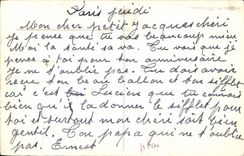 Paris jeudi
Mon cher petit Jacques chéri
je pense que tu vas beaucoup mieux
Moi la santé va. Tu vois que je
pense à toi pour ton anniversaire
je ne t'oublie pas. Tu dois avoir
reçu ton beau ballon et ton sifflet
car c'est Lucien qui tu connais
bien qui l'a donner le sifflet pour
toi et surtout mon chéri soit bien
gentil. Ton papa qui ne t'oublie
pas. Ernest